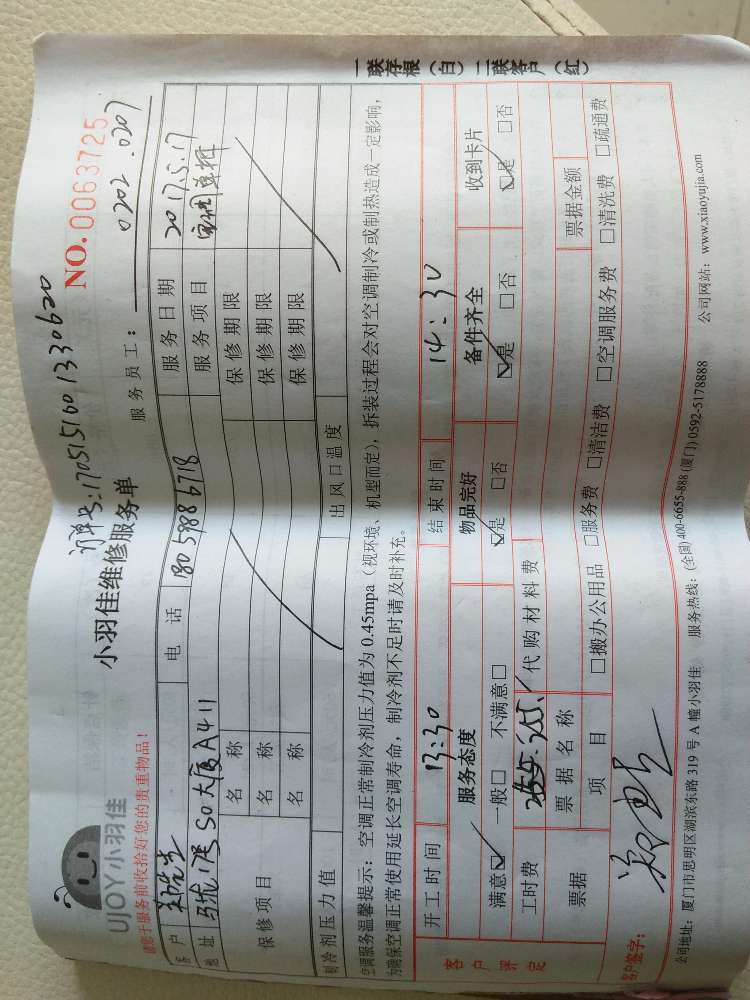 订单号:1705151601330620
UJOY小羽佳
小羽佳维修服务单
NO.0063725
请您于服务前收拾好您的贵重物品!
服务员工: 0202 .0207
客户 郑先生 电话 18059886718 服务日期 2017.5.17
地址 SO大厦A411 服务项目
保修项目 名称 保修期限
名称 保修期限
名称 保修期限
制冷剂压力值 出风口温度
空调服务温馨提示:空调正常制冷剂压力值为0.45mpa(视环境、机型而定),拆装过程会对空调制冷或制热造成一定影响,
为确保空调正常使用延长空调寿命,制冷剂不足时请及时补充。
客户评定
开工时间 13:30 结束时间 14:30
服务态度 物品完好 备件齐全 收到卡片
满意☑ 一般□ 不满意□ ☑是 □否 ☑是 □否 ☑是 □否
工时费 代购材料费
票据 票据名称 票据金额
项目 □搬办公用品 □服务费 □清洁费 □空调服务费 □清洗费 □疏通费
客户签字:
公司地址:厦门市思明区湖滨东路319号A幢小羽佳 服务热线:(全国)400-6655-888(厦门)0592-5178888 公司网站:www.xiaoyujia.com
一联存根(白)二联客户(红)